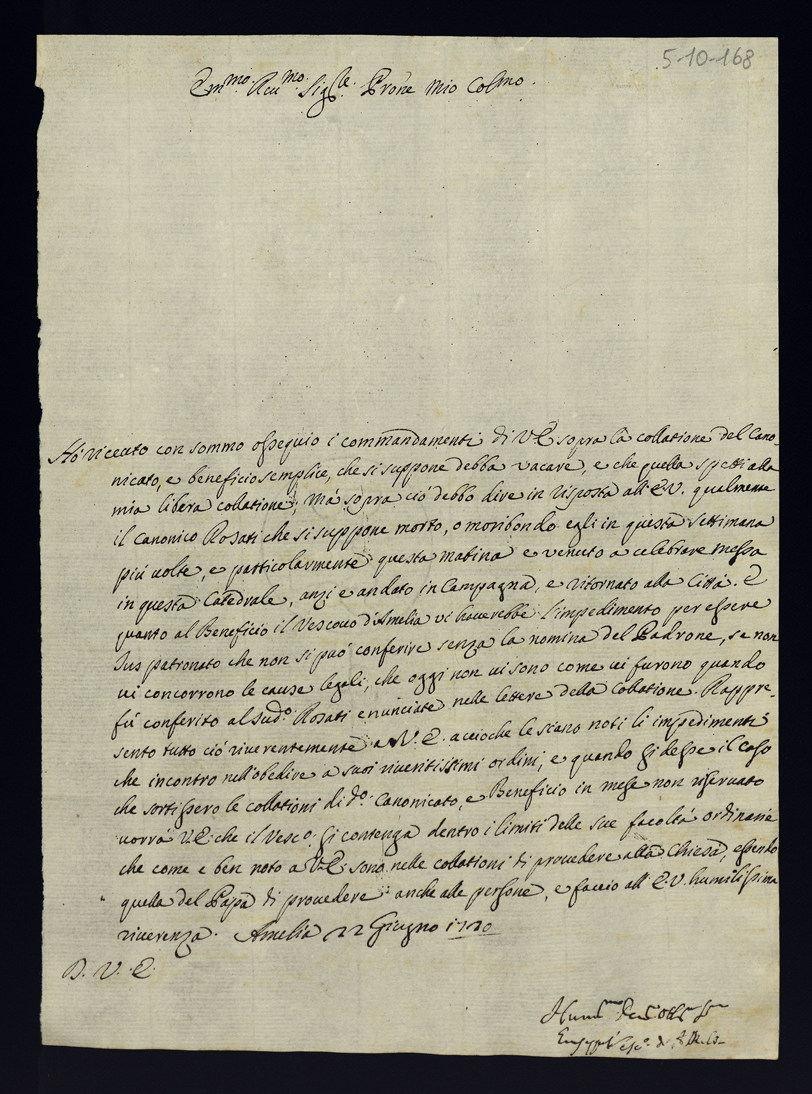 5-10-168
Em.mo Reu.mo Sig.re Prõne mio Colmo.
Hó riceuto con sommo ossequio i commandamenti di V.E. sopra la collatione del Cano-
nicato, e beneficio semplice, che si suppone debba vacare, e che quella spetti alla
mia libera collatione; Má sopra ció debbo dire in risposta all'E.V. qualmente
il Canonico Rosati che si suppone morto, o moribondo egli in questa settimana
piú uolte, e particolarmente questa matina e venuto a celebrare messa
in questa Catedrale, anzi e andato in Campagna, e ritornato alla Cittá. E
quanto al Beneficio il Vescouo d'Amelia vi hauerebbe l'impedimento per essere
Ius patronato che non si puó conferire senza la nomina del Padrone, se non
vi concorrono le cause legali, che oggi non ui sono come ui furono quando
fú conferito al sud.o Rosati enunciate nelle lettere della Collatione. Rappre-
sento tutto ció riuerentemente a V.E. accioche le siano noti li impedimenti
che incontro nell'obedire a suoi riueritissimi ordini, e quando si desse il caso
che sortissero le collationi di d.o Canonicato, e Beneficio in mese non riseruato
uorrá V.E. che il Vesc.o si contenga dentro i limiti delle sue facoltá ordinarie
che come e ben noto a V.E. sono nelle collationi di prouedere alla Chiesa, essendo
quella del Papa di prouedere anche alle persone, e faccio all'E.V. humilissima
riuerenza. Amelia 22 Giugno 1720
D. V. E.
Humil.mo
Vesc.o di